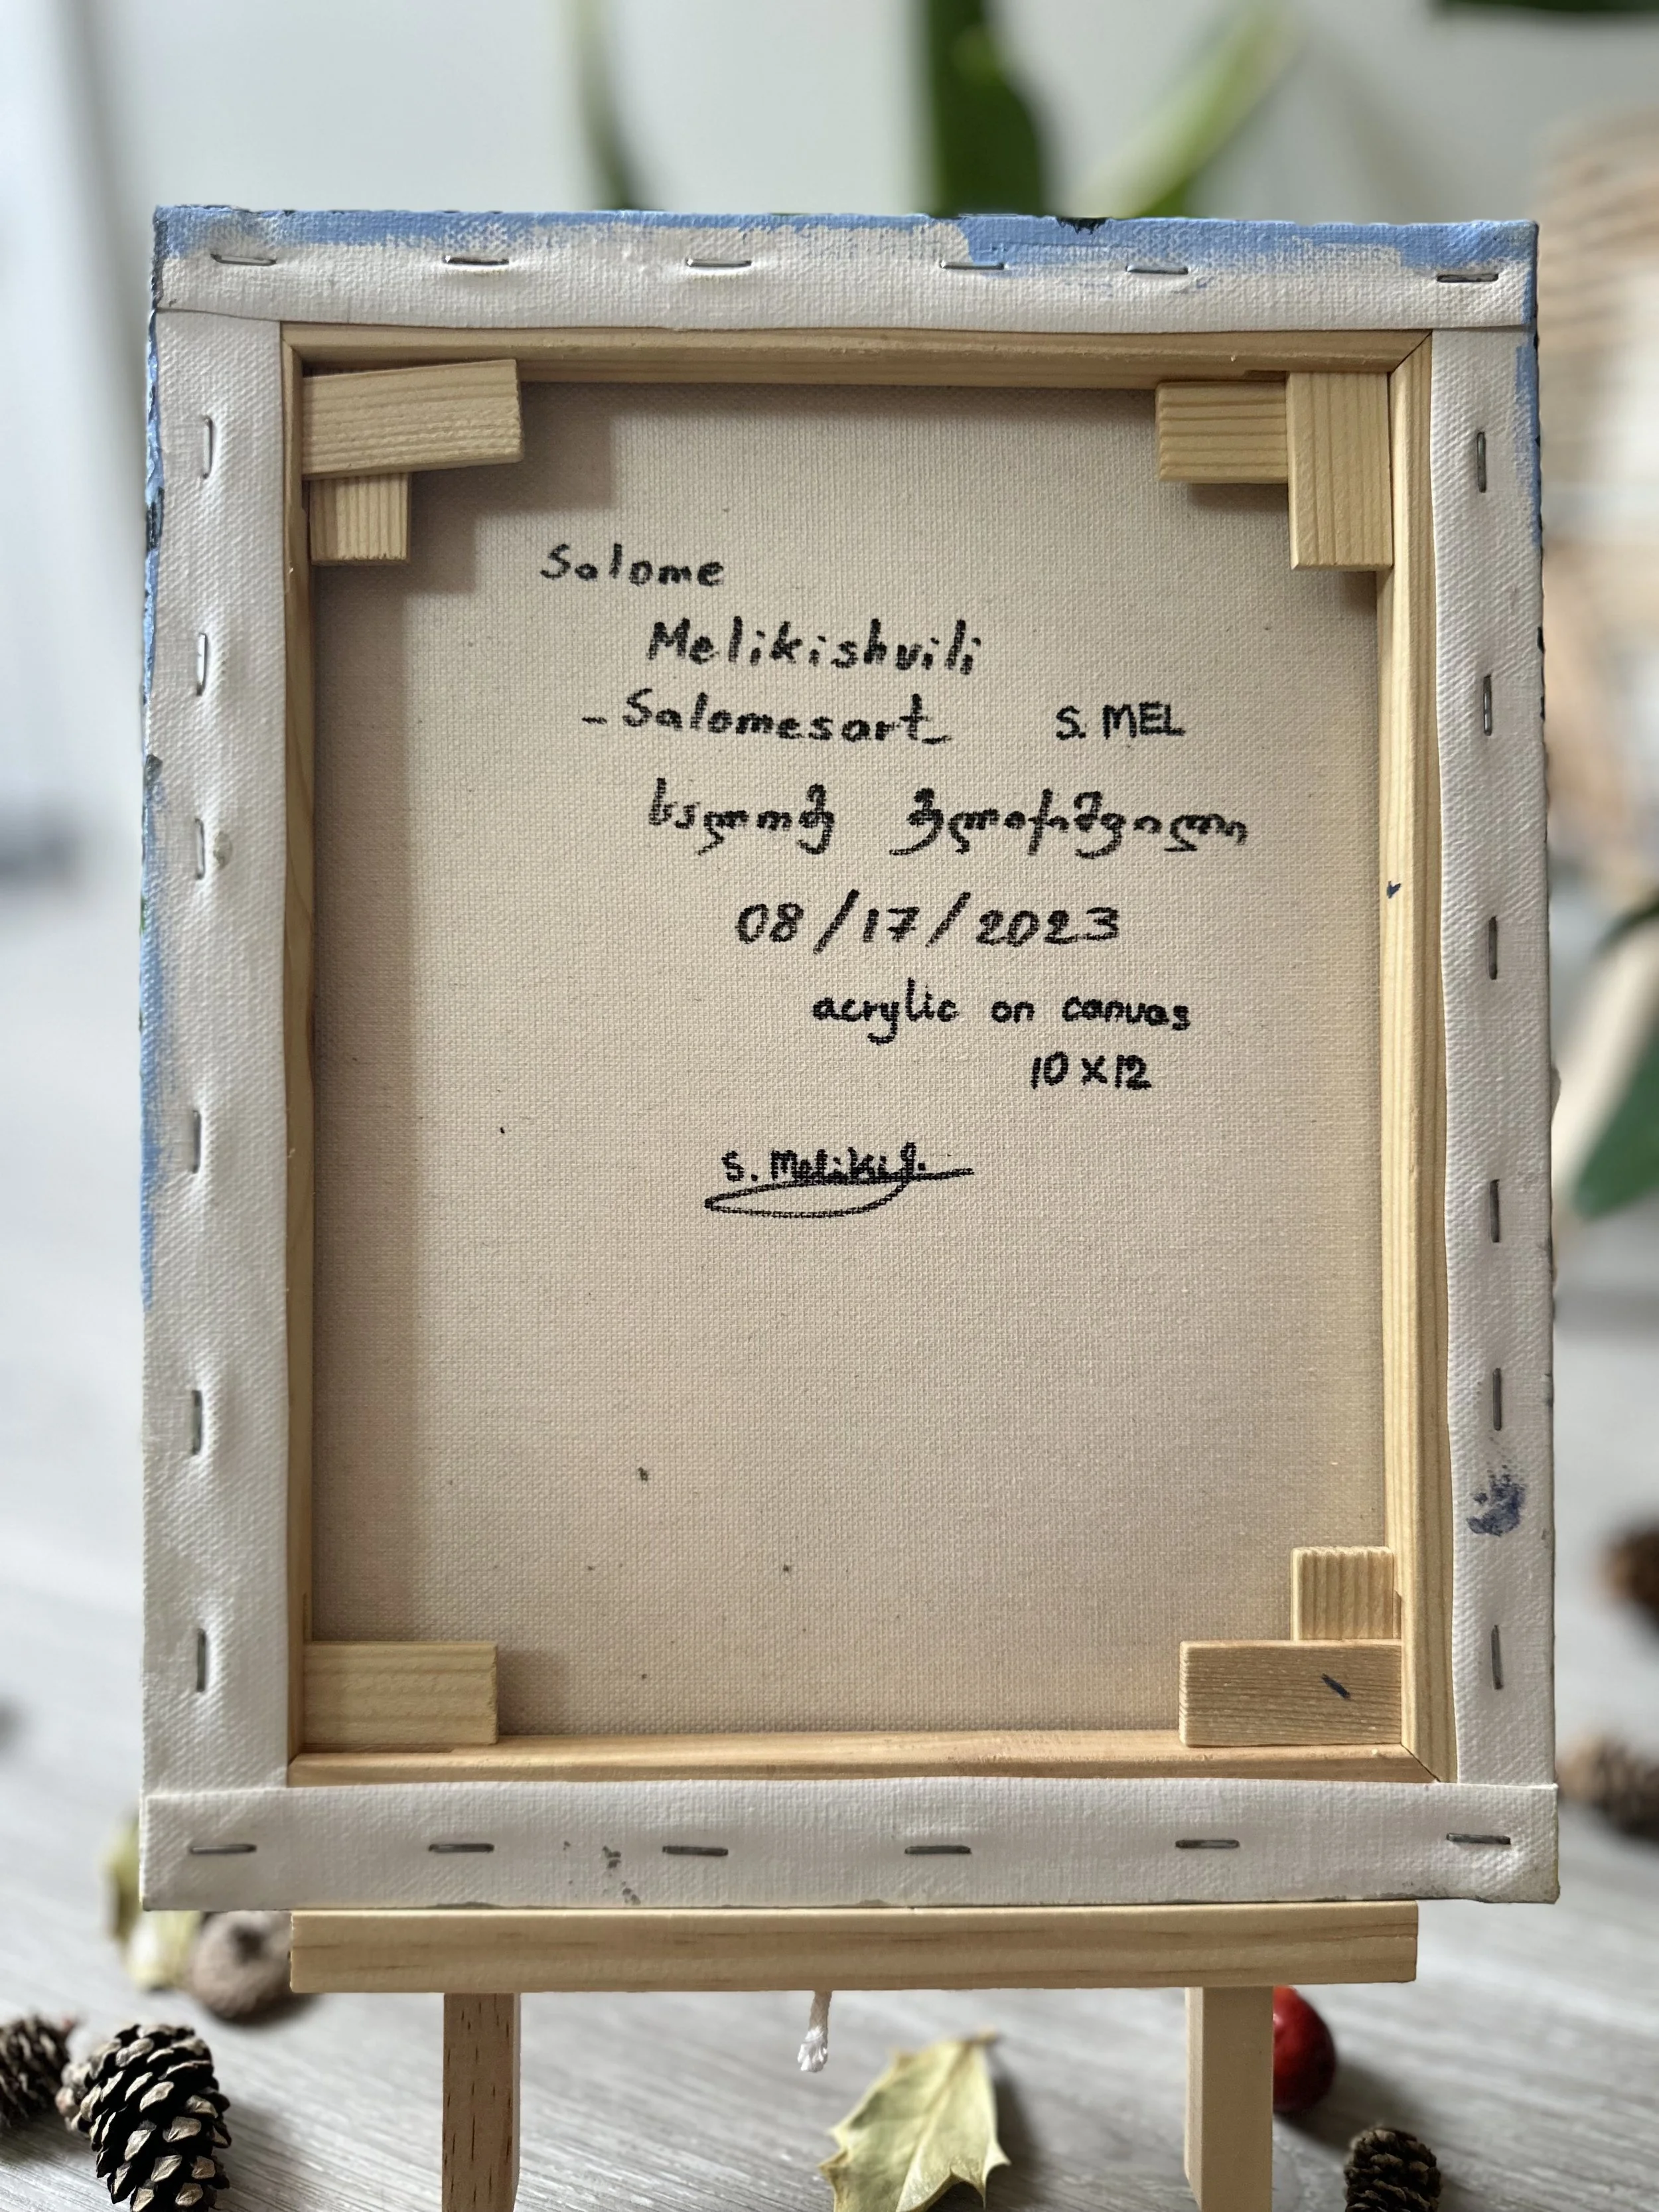 Salome
Melikishvili
-Salomesart_ S. MEL
სალომე მელიქიშვილი
08/17/2023
acrylic on canvas
10x12
S. Meliki